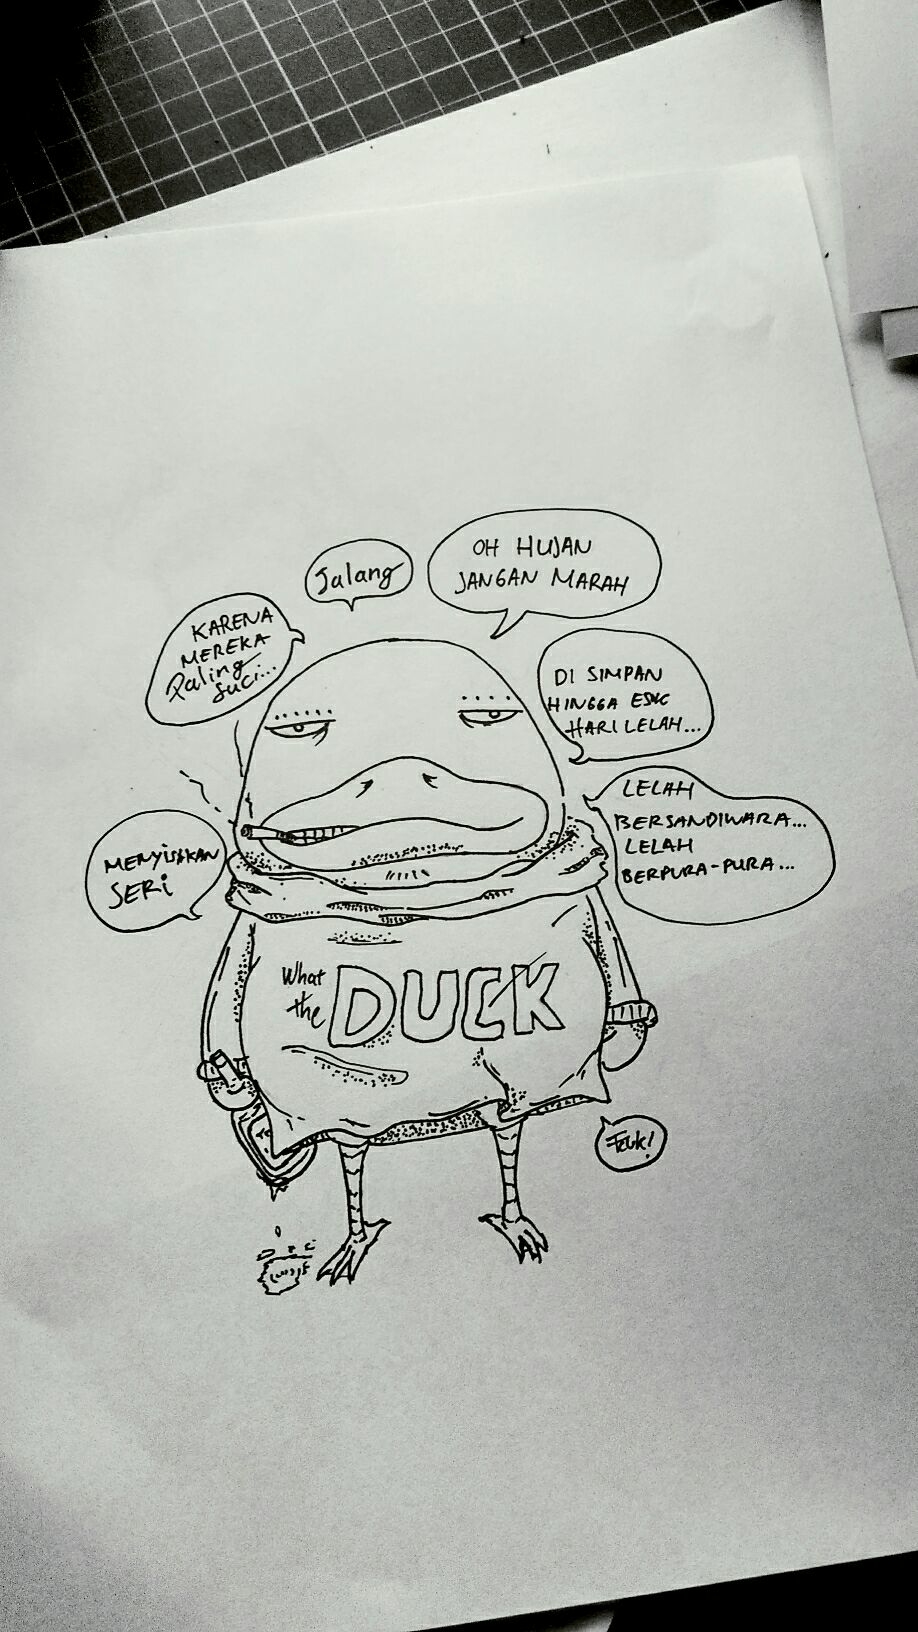 Jalang
OH HUJAN
JANGAN MARAH
KARENA
MEREKA
Paling
suci...
DI SIMPAN
HINGGA ESK
HARI LELAH...
LELAH
BERSANDIWARA...
LELAH
BERPURA-PURA...
MENYISAKAN
SERI
What
the DUCK